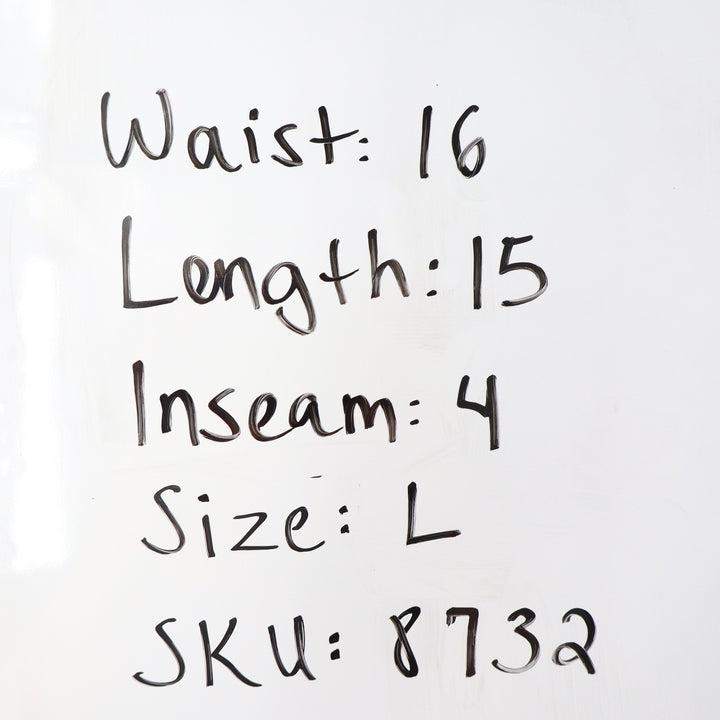 Waist: 16
Length: 15
Inseam: 4
Size: L
SKU: 8732